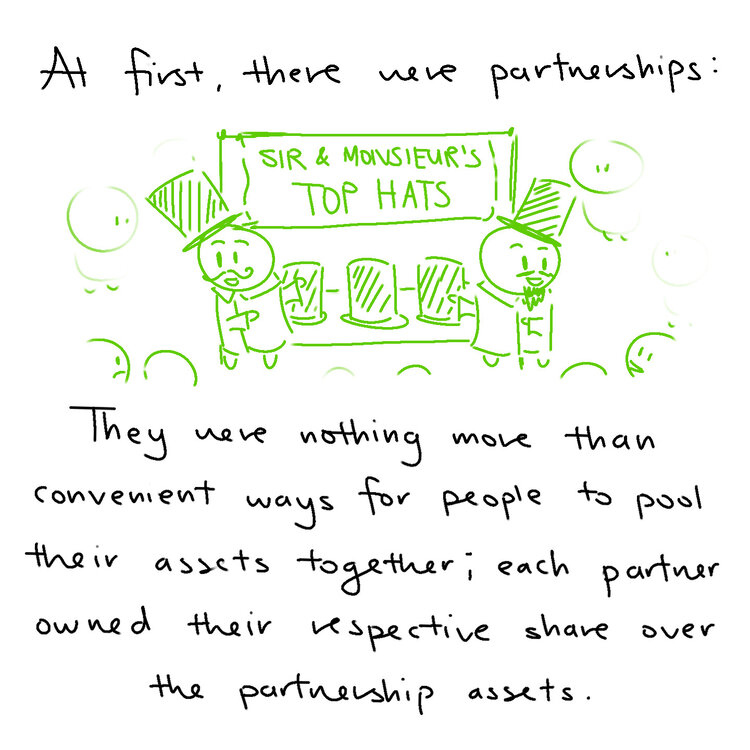 At first, there were partnerships:
SIR & MONSIEUR'S
TOP HATS
They were nothing more than
convenient ways for people to pool
their assets together; each partner
owned their respective share over
the partnership assets.